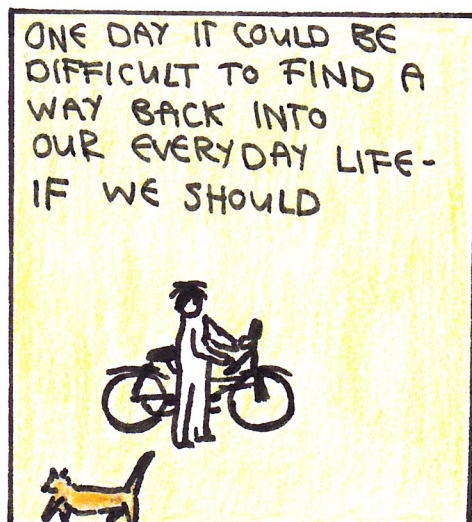 ONE DAY IT COULD BE
DIFFICULT TO FIND A
WAY BACK INTO
OUR EVERYDAY LIFE-
IF WE SHOULD